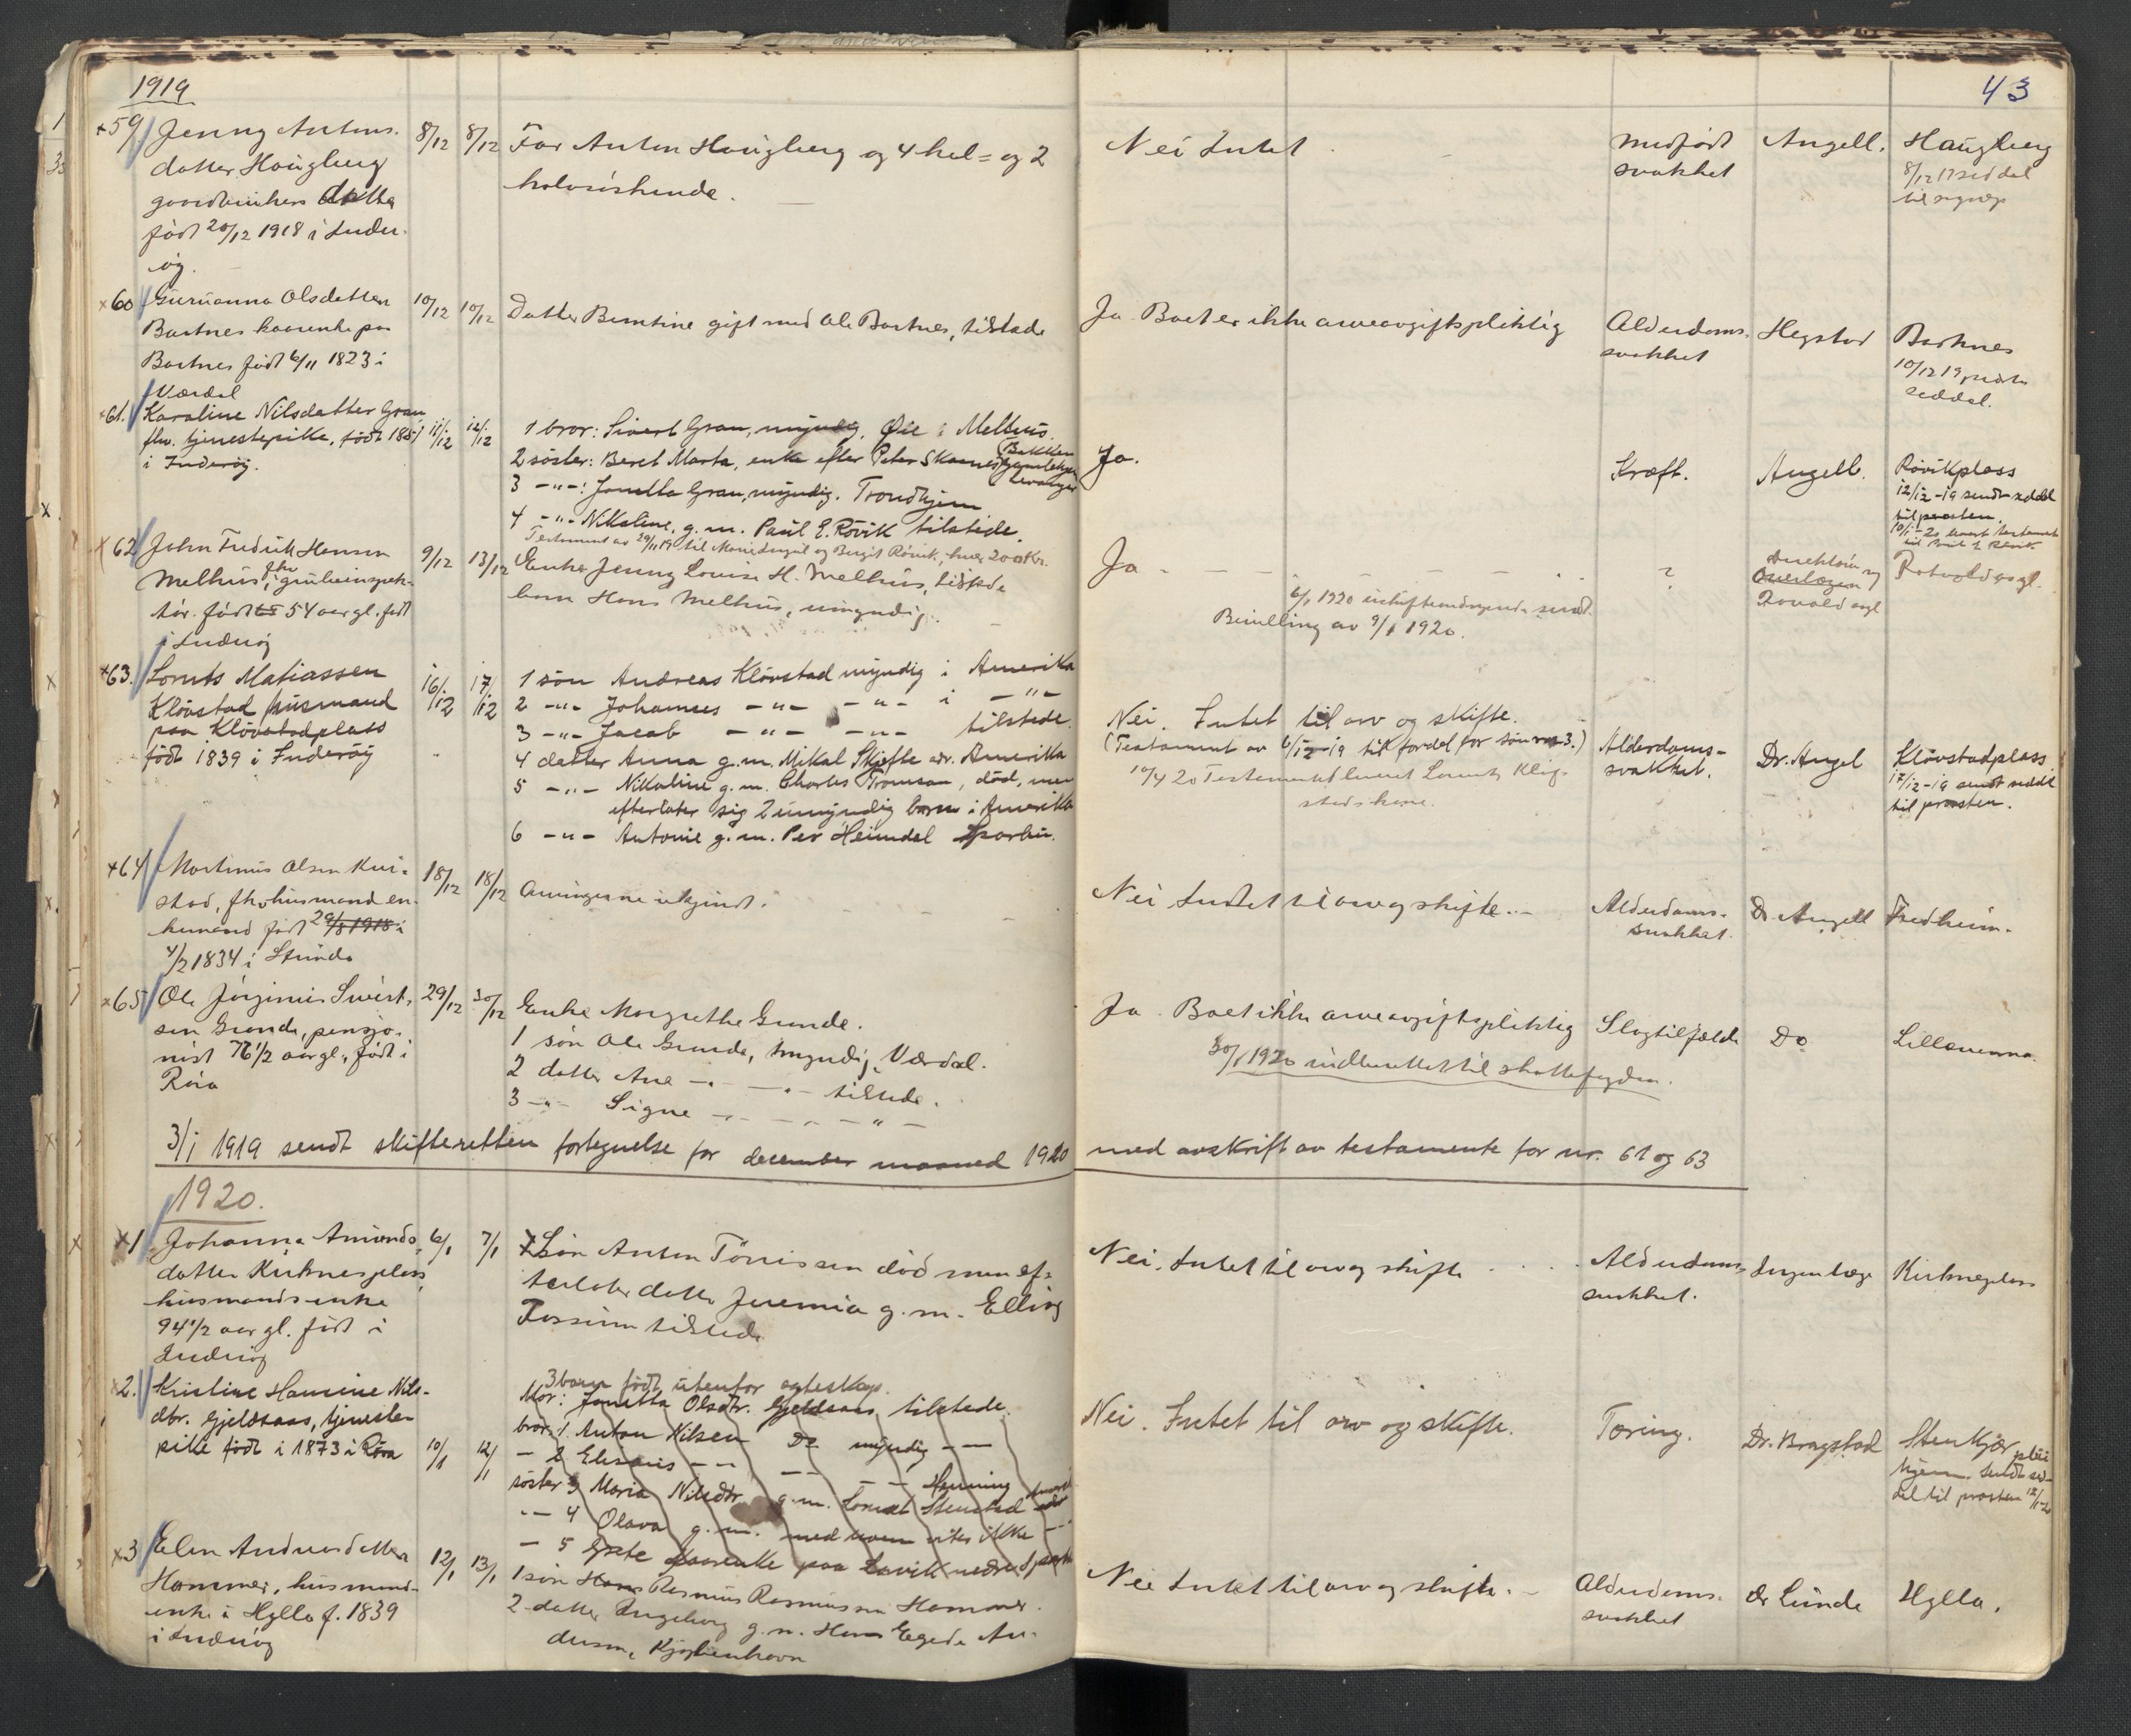 1919
43
+59 Jenny Antons-
datter Haugberg
gaardbrukers datter
født 20/12 1918 i Inder-
øy.
8/12 8/12
Far Anton Haugberg og 4 hel= og 2
halvsøskende.
Nei Intet
Medfødt
svakhet
Angell.
Haugberg
8/12 17 seddel
til
×60 Guruanna Olsdatter
Bartnes kaarenke paa
Bartnes født 6/11 1823 i
Værdal
10/12 10/12
Datter Berntine gift med Ole Bartnes, tilstede
Ja Boet er ikke arveavgiftspliktig
Alderdoms-
svakhet
Hegstad
Bartnes
10/12 19
seddel.
×61. Karoline Nilsdatter Gran
fhv. tjenestepike, født 1851
i Inderøy.
11/12 12/12
1 bror: Sivert Gran, myndig, Øie i Melhus.
2 søster: Beret Marta, enke efter Peter Skaanes Bakken
Levanger
3 -"-: Jonetta Gran, myndig. Trondhjem
4 -"- Nikoline, g.m. Paul E. Røvik tilstede.
Testament av 29/11 19 til og Birgit Røvik, hver 200 Kr.
Ja.
Kræft.
Angell.
Røvikplass
12/12-19 sendt seddel
til prosten.
10/1-20 testament
×62 John Fredrik Hansen
Melhus, fhv grubeinspek-
tør. født 54 aar gl. født
i Inderøy
9/12 13/12
Enke Jenny Louise H. Melhus, tilstede
barn Hans Melhus, umyndig.
Ja - - - - -
6/1 1920 sendt.
Bevilling av 9/1 1920.
?
Direktør og
Overlægen
Rotvold asyl
Rotvold asyl.
+63. Lornts Matiassen
Kløvstad husmand
paa Kløvstadplass
født 1839 i Inderøy
16/12 17/12
1 søn Andreas Kløvstad myndig i Amerika
2 -"- Johannes -"- -"- i -"-
3 -"- Jacob -"- -"- tilstede.
4 datter Anna g.m. Mikal Skjefte adr. Amerika
5 -"- Nikoline g.m. Charles Tromsan, død, men
efterlater sig 2 umyndig barn i Amerika
6 -"- Antonie g.m. Per Heimdal Sparbu.
Nei. Intet til arv og skifte.
(Testament av 6/12-19 til fordel for søn nr 3.)
10/4 20 Testamentet leveret Lornts Kløv-
stads
Alderdoms-
svakhet.
Dr. Angel
Kløvstadplass
17/12-19 sendt seddel
til prosten.
+64 Martinus Olsen Kvi-
stad, fhv husmand en-
kemand født 29/8 1918 i
4/2 1834 i Strinda
18/12 18/12
Arvingerne ukjendt.
Nei Intet til arv og skifte.-
Alderdoms-
svakhet.
Dr Angell
Fredheim.
×65 Ole Jørginus Sivert-
sen Grande, pensjo-
nist 76 1/2 aar gl., født i
Røra
29/12 30/12
Enke Margrethe Grande.
1 søn Ole Grande, myndig, Værdal.
2 datter Ane -"- -"- tilstede.
3 -"- Signe -"- -"- -"-
Ja. Boet ikke arveavgiftspliktig
30/1 1920 indberettet til skattefogden.
Slagtilfælde
Do
Lillemema
3/1 1919 sendt skifteretten fortegnelse for december maaned 1920 med avskrift av testamente for nr. 61 og 63
1920.
×1 Johanna Amunds-
datter Kirknesplass
husmandsenke
94 1/2 aar gl. født i
Inderøy
6/1 7/1
Søn Anton Tønissen død men ef-
terlater datter Jeremia g.m. Elling
Fossum tilstede
Nei. Intet til arv og skifte
Alderdoms-
svakhet.
Ingen læge
Kirknesplass
×2. Kristine Hansine Nils-
dtr. Gjeldsaas, tjeneste-
pike født i 1873 i Røra
10/1 12/1
3 barn født utenfor egteskap.
Mor: Jonetta Olsdtr. Gjeldsaas tilstede.
bror 1. Anton Nilsen Do myndig - -
- 2 Elesæus - -
- Henning
søster 3 Maria Nilsdtr. g.m. Lornt Stenstad
-- 4 Olava g.m. med hvem vites ikke
- 5 Grete kaarenke paa Lavik nedre
Nei. Intet til arv og skifte.
Tæring.
Dr. Bragstad
Stenkjær plei
hjem. Sendt sed-
del til prosten 12/1-20
×3 Elen Andreasdatter
Hammer, husmands-
enke i Hylla f. 1839
i Inderøy
12/1 13/1
1 søn Hans Rasmus Rasmussen Hammer.
2 datter Ingeborg g.m. Hans Egede An-
dersen, Kjøbenhavn
Nei Intet til arv og skifte.-
Alderdoms-
svakhet
Dr Lunde
Hylla.